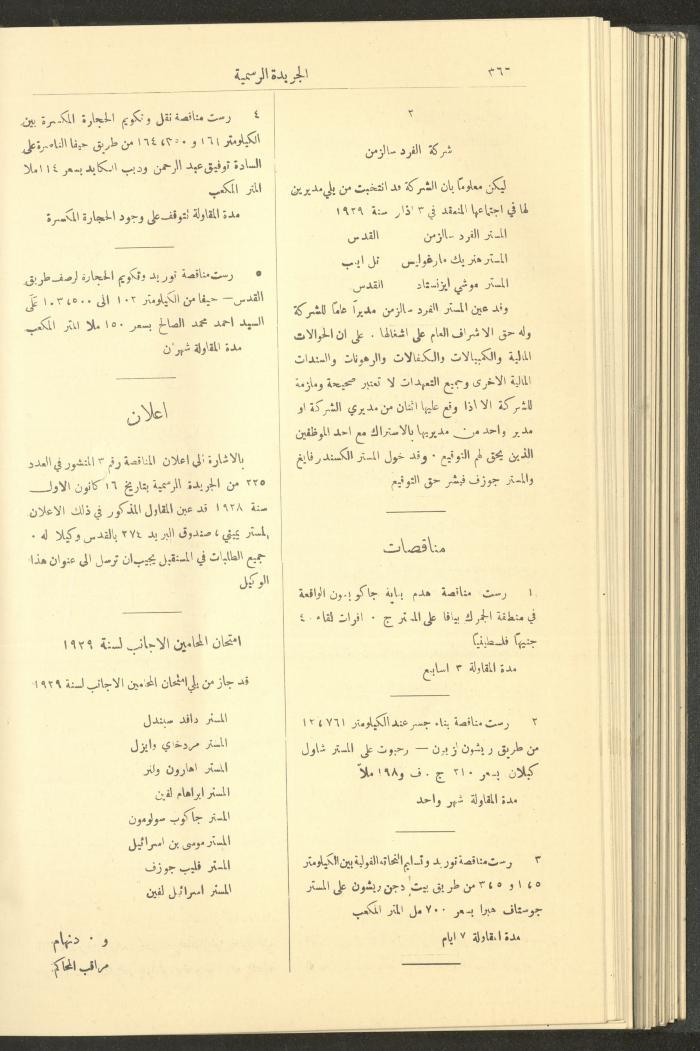 ٣٦٦
الجريدة الرسمية
٢
شركة الفرد سالزمن
ليكن معلوماً بان الشركة قد انتخبت من يلي مديرين
لها في اجتماعها المنعقد في ٣ اذار سنة ١٩٢٩
المستر الفرد سالزمن القدس
المستر هنريك مارغوليس تل ابيب
المستر موشي ايزنستاد القدس
وقد عين المستر الفرد سالزمن مديراً عاماً للشركة
وله حق الاشراف العام على اشغالها . على ان الحوالات
المالية والكمبيالات والكفالات والرهونات والسندات
المالية الاخرى وجميع التعهدات لا تعتبر صحيحة وملزمة
للشركة الا اذا وقع عليها اثنان من مديري الشركة او
مدير واحد من مديريها بالاشتراك مع احد الموظفين
الذين يحق لهم التوقيع . وقد خول المستر الكسندر فايغ
والمستر جوزف فيشر حق التوقيع
مناقصات
١ رست مناقصة هدم بناية جاكوبسون الواقعة
في منطقة الجمرك بيافا على المستر ج . افرات لقاء ٤٠
جنيهاً فلسطينياً
مدة المقاولة ٣ اسابيع
٢ رست مناقصة بناء جسر عند الكيلومتر ١٢،٧٦١
من طريق ريشون لزيون — رحبوت على المستر شاول
كبلان بسعر ٢١٠ ج . ف و١٩٨ ملاً
مدة المقاولة شهر واحد
٣ رست مناقصة توريد وتسليم النحاتة الفولية بين الكيلومتر
١،٤٥ و ٣،٤٥ من طريق بيت دجن ريشون على المستر
جوستاف هبرا بسعر ٧٠٠ مل المتر المكعب
مدة المقاولة ٧ ايام
٤ رست مناقصة نقل وتكويم الحجارة المكسرة بين
الكيلومتر ١٦١ و ١٦٤،٣٥٠ من طريق حيفا الناصرة على
السادة توفيق عبد الرحمن وديب الكايد بسعر ١١٤ ملا
المتر المكعب
مدة المقاولة تتوقف على وجود الحجارة المكسرة
٥ رست مناقصة توريد وتكويم الحجارة لرصف طريق
القدس — حيفا من الكيلومتر ١٠٢ الى ١٠٣،٥٠٠ على
السيد احمد محمد الصالح بسعر ١٥٠ ملا المتر المكعب
مدة المقاولة شهران
اعلان
بالاشارة الى اعلان المناقصة رقم ٣ المنشور في العدد
٢٢٥ من الجريدة الرسمية بتاريخ ١٦ كانون الاول
سنة ١٩٢٨ قد عين المقاول المذكور في ذلك الاعلان
صندوق البريد ٢٧٤ بالقدس وكيلا له .
جميع الطلبات في المستقبل يجب ان ترسل الى عنوان هذا
الوكيل
امتحان المحامين الاجانب لسنة ١٩٢٩
قد جاز من يلي امتحان المحامين الاجانب لسنة ١٩٢٩
المستر دافد سبندل
المستر مردخاي وايزل
المستر اهارون ولنر
المستر ابراهام لفين
المستر جاكوب سولومون
المستر موسى بن اسرائيل
المستر فليب جوزف
المستر اسرائيل لفين
و . دنهام
مراقب المحاكم